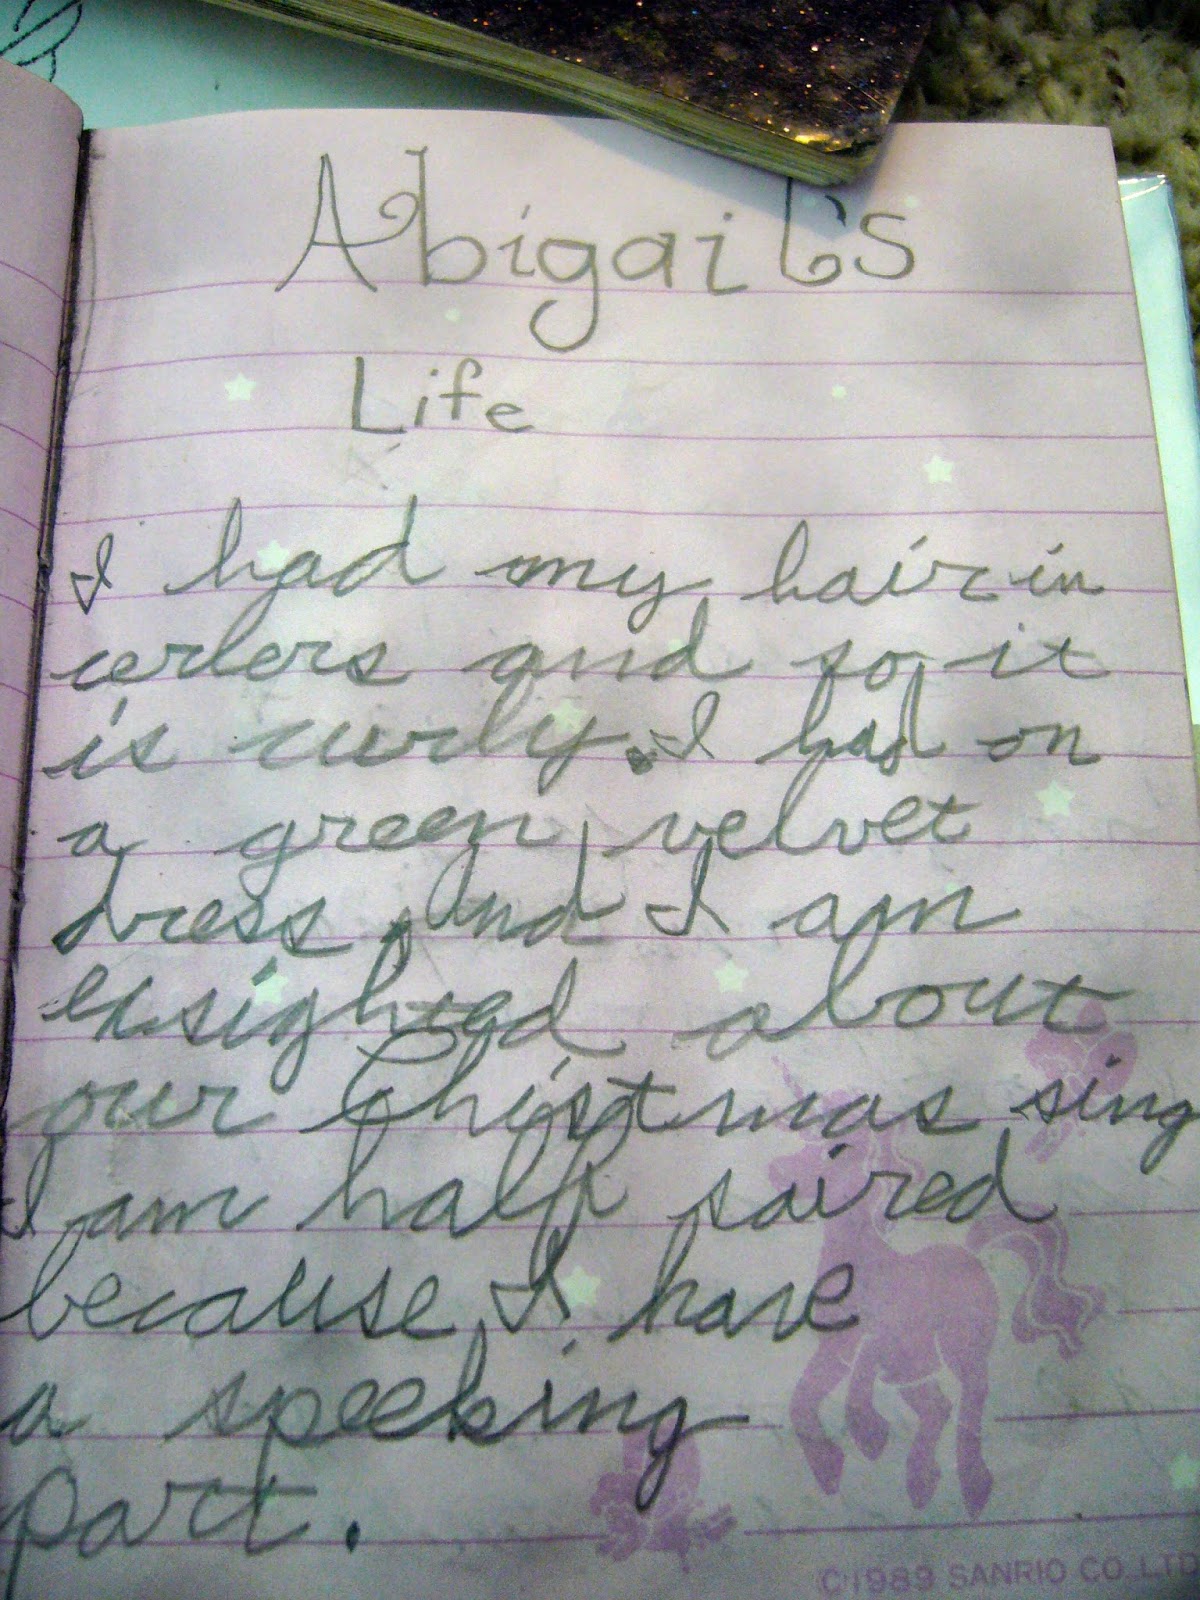 Abigail's
Life
I had my hair in
cerlers and so it
is curly. I had on
a green velvet
dress, and I am
exsighted about
our Christmas sing
I am half saired
because I have
a speeking
part.
©1989 SANRIO CO.,LTD